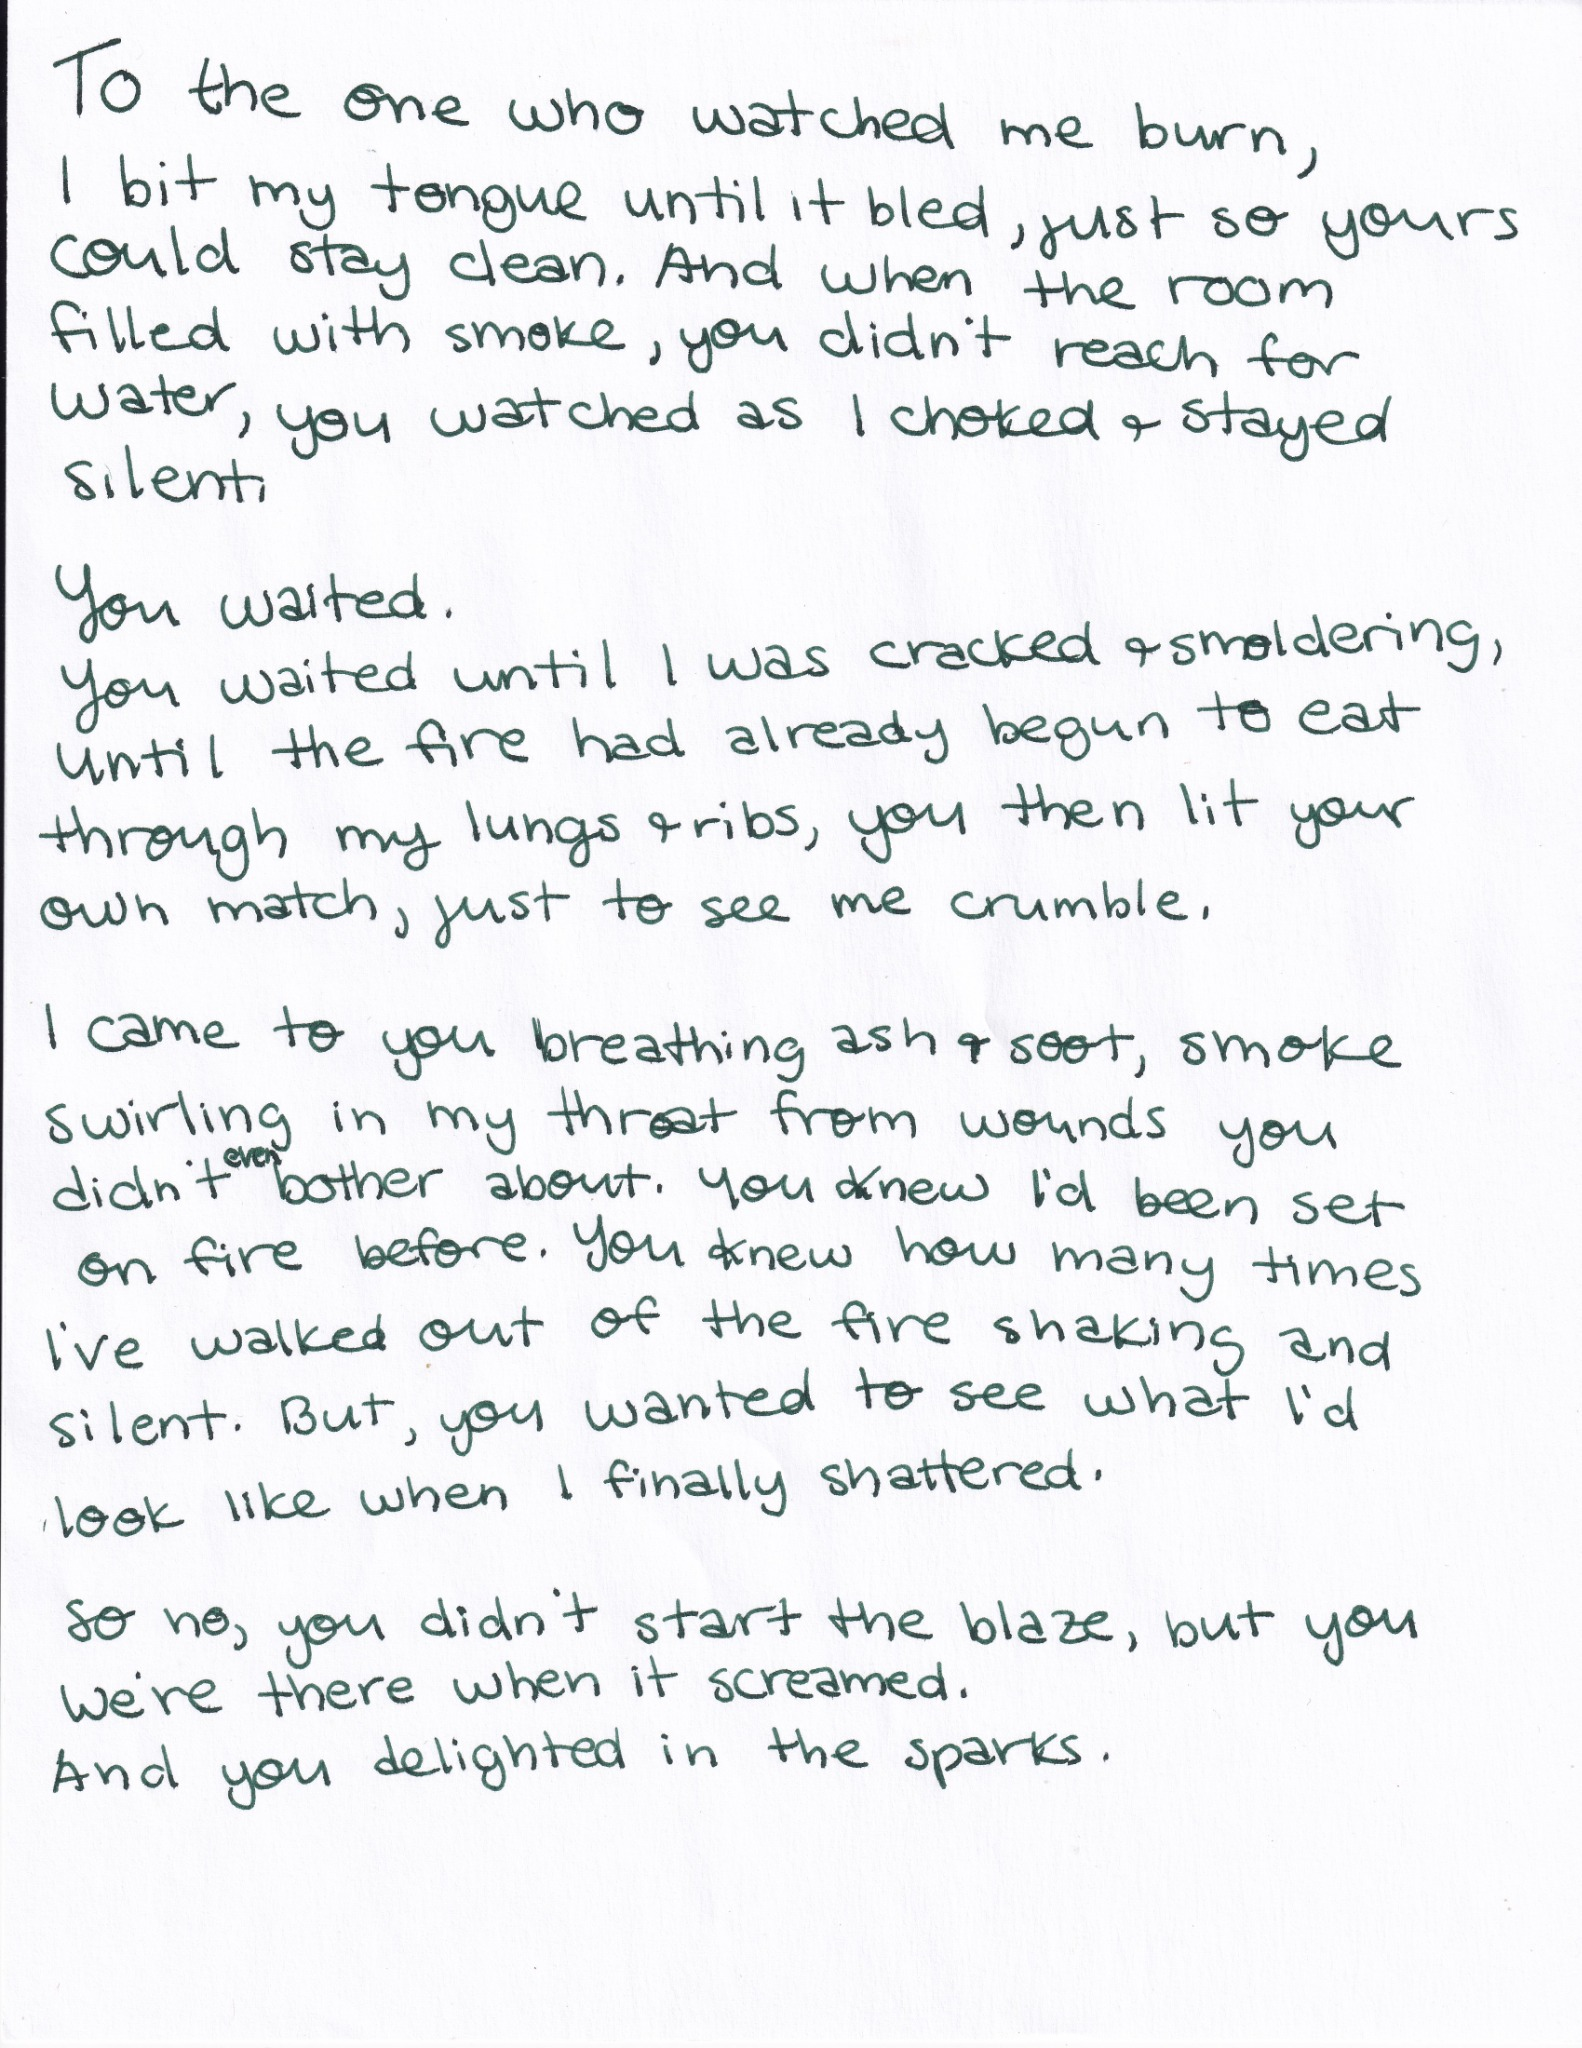 To the one who watched me burn,
I bit my tongue until it bled, just so yours
could stay clean. And when the room
filled with smoke, you didn't reach for
water, you watched as I choked & stayed
silent.
You waited.
You waited until I was cracked & smoldering,
until the fire had already begun to eat
through my lungs & ribs, you then lit your
own match, just to see me crumble.
I came to you breathing ash & soot, smoke
swirling in my throat from wounds you
didn't even bother about. You knew I'd been set
on fire before. You knew how many times
I've walked out of the fire shaking and
silent. But, you wanted to see what I'd
look like when I finally shattered.
So no, you didn't start the blaze, but you
we're there when it screamed.
And you delighted in the sparks.